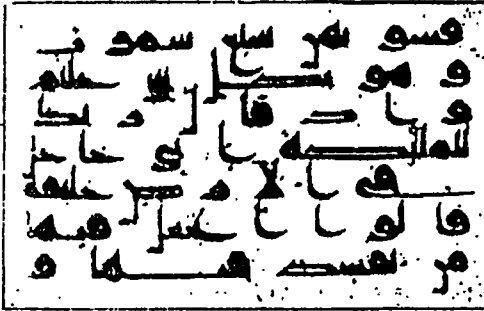 فسويهن سبع سموت
و هو بكل شى عليم
و اذ قال ربك
للملئكة انى جاعل
فى الارض خليفة
قالوا اتجعل فيها
من يفسد فيها و